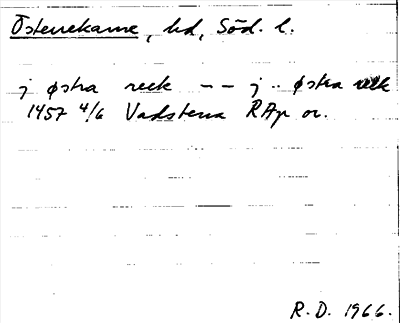 Österrekarne, hd, Söd. l.
j østra reek -- j .. østra reek
1457 4/6 Vadstena RAp or.
R.D. 1966.